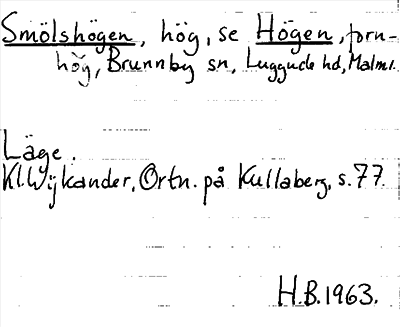 Smölshögen, hög, se Högen, forn-
hög, Brunnby sn, Luggude hd, Malm.
Läge.
Kl. Wijkander, Ortn. på Kullaberg, s. 77.
H.B. 1963.